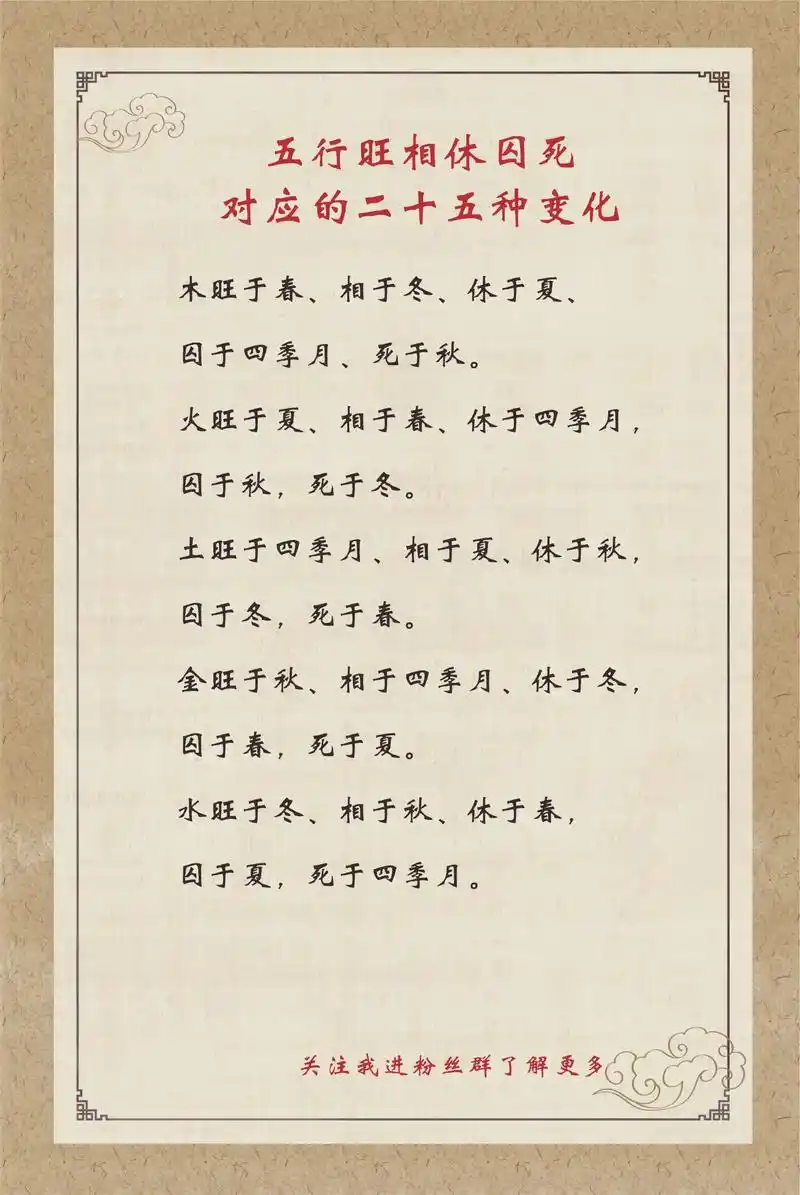 五行旺相休囚死
对应的二十五种变化
木旺于春、相于冬、休于夏、
囚于四季月、死于秋。
火旺于夏、相于春、休于四季月，
囚于秋，死于冬。
土旺于四季月、相于夏、休于秋，
囚于冬，死于春。
金旺于秋、相于四季月、休于冬，
囚于春，死于夏。
水旺于冬、相于秋、休于春，
囚于夏，死于四季月。
关注我进粉丝群了解更多